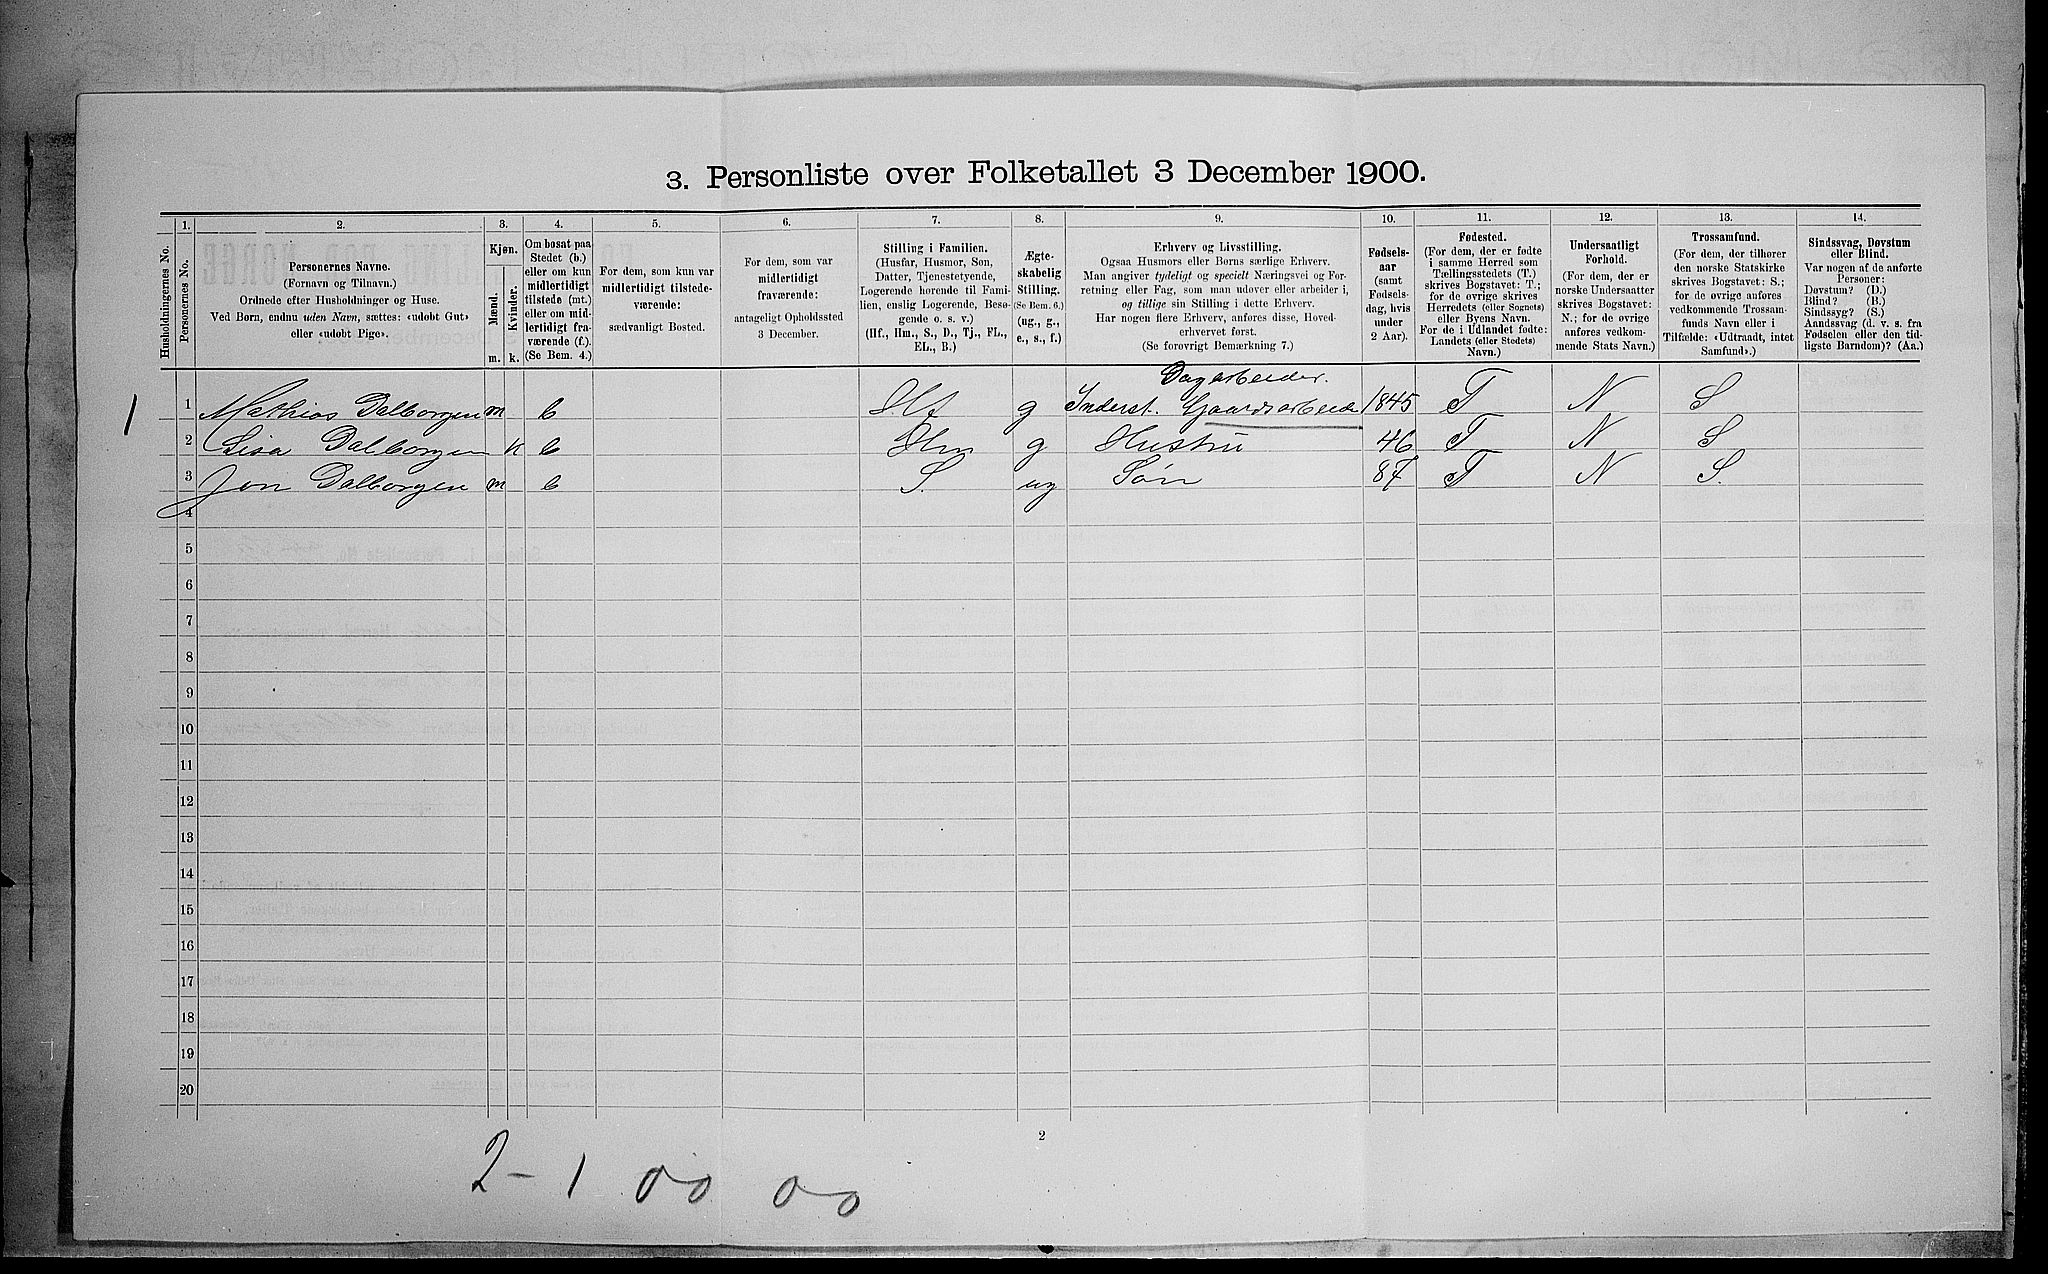 3. Personliste over Folketallet 3 December 1900.
1. 2. 3. 4. 5. 6. 7. 8. 9. 10. 11. 12. 13. 14.
Husholdningernes No.
Personernes No.
Personernes Navne.
(Fornavn og Tilnavn.)
Ordnede efter Husholdninger og Huse.
Ved Børn, endnu uden Navn, sættes: «udøbt Gut»
eller «udøbt Pige».
Kjøn.
Mænd.
Kvinder.
m. k.
Om bosat paa
Stedet (b.)
eller om kun
midlertidigt
tilstede (mt.)
eller om mid-
lertidigt fra-
værende (f.).
(Se Bem. 4.)
For dem, som kun var
midlertidigt tilstede-
værende:
sædvanligt Bosted.
For dem, som var
midlertidigt
fraværende:
antageligt Opholdssted
3 December.
Stilling i Familien.
(Husfar, Husmor, Søn,
Datter, Tjenestetyende,
Logerende hørende til Fami-
lien, enslig Logerende, Besø-
gende o. s. v.)
(Hf., Hm., S., D., Tj., FL.,
EL., B.)
Ægte-
skabelig
Stilling.
(Se Bem. 6.)
(ug., g.,
e., s., f.)
Erhverv og Livsstilling.
Ogsaa Husmors eller Børns særlige Erhverv.
Man angiver tydeligt og specielt Næringsvei og For-
retning eller Fag, som man udover eller arbeider i,
og tillige sin Stilling i dette Erhverv.
Har nogen flere Erhverv, anføres disse, Hoved-
erhvervet først.
(Se forøvrigt Bemærkning 7.)
Fødsels-
aar
(samt
Fødsels-
dag, hvis
under
2 Aar).
Fødested.
(For dem, der er fødte
i samme Herred som
Tællingsstedets (T.)
skrives Bogstavet: T.;
for de øvrige skrives
Herredets (eller Sognets)
eller Byens Navn.
For de i Udlandet fødte:
Landets (eller Stedets)
Navn.)
Undersaatligt
Forhold.
(For dem, der er
norske Undersaatter
skrives Bogstavet:
N.; for de øvrige
anføres vedkom-
mende Stats Navn.)
Trossamfund.
(For dem, der tilhører
den norske Statskirke
skrives Bogstavet: S.;
for de øvrige anføres
vedkommende Trossam-
funds Navn eller i
Tilfælde: «Udtraadt, intet
Samfund».)
Sindssvag, Døvstum
eller Blind.
Var nogen af de anførte
Personer:
Døvstum? (D.)
Blind? (B.)
Sindssyg? (S.)
Aandssvag (d. v. s. fra
Fødselen eller den tid-
ligste Barndom)? (Aa.)
Dagarbeider.
1 1 Mathias Dalborgen m b Hf g Inderst. Gaardsarbeide 1845 T N S
2 Lisa Dalborgen k b Hm g Hustru 46 T N S
3 Jon Dalborgen m b S. ug Søn 87 T N S.
4
5
6
7
8
9
10
11
12
13
14
15
16
17
18
19
20
2
2-1 00 00